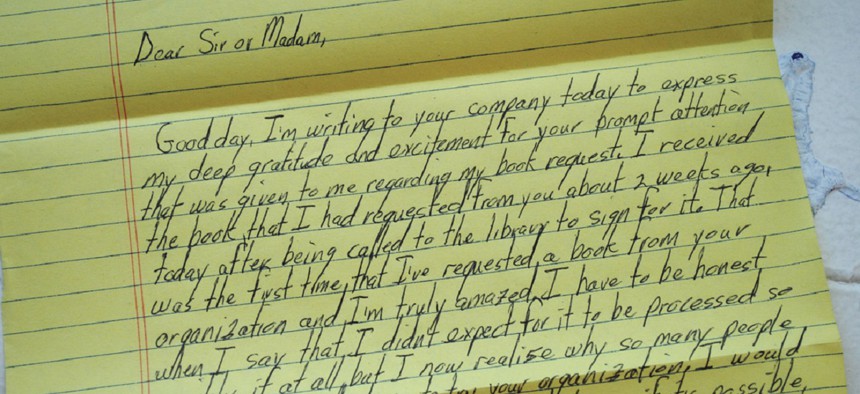 Dear Sir or Madam,
Good day, I'm writing to your company today to express
my deep gratitude and excitement for your prompt attention
that was given to me regarding my book request. I received
the book that I had requested from you about 2 weeks ago,
today after being called to the library to sign for it. That
was the first time that I've requested a book from your
organization and I'm truly amazed. I have to be honest
when I say that I didn't expect for it to be processed so
it at all, but I now realise why so many people
your organization, I would
possible,